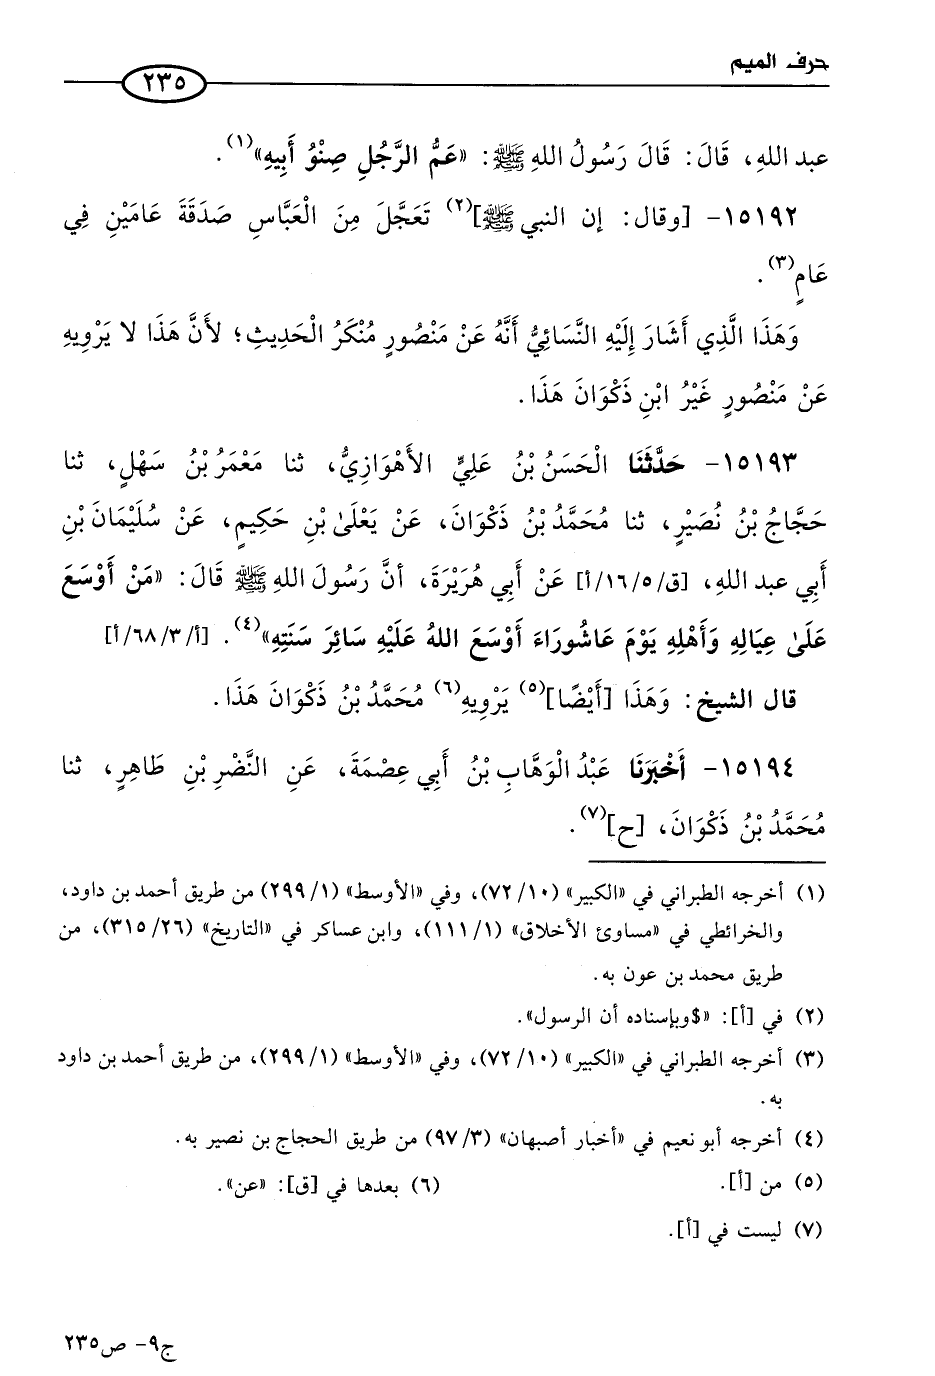 حرف الميم
٢٣٥
عبد اللهِ، قَالَ: قَالَ رَسُولُ اللهِ ﷺ: «عَمُّ الرَّجُلِ صِنْوُ أَبِيهِ»(١).
١٥١٩٢- [وقال: إن النبي ﷺ](٢) تَعَجَّلَ مِنَ الْعَبَّاسِ صَدَقَةَ عَامَيْنِ فِي
عَامٍ(٣).
وَهَذَا الَّذِي أَشَارَ إِلَيْهِ النَّسَائِيُّ أَنَّهُ عَنْ مَنْصُورٍ مُنْكَرُ الْحَدِيثِ؛ لأَنَّ هَذَا لا يَرْوِيهِ
عَنْ مَنْصُورٍ غَيْرُ ابْنِ ذَكْوَانَ هَذَا.
١٥١٩٣- حَدَّثَنَا الْحَسَنُ بْنُ عَلِيٍّ الأَهْوَازِيُّ، ثنا مَعْمَرُ بْنُ سَهْلٍ، ثنا
حَجَّاجُ بْنُ نُصَيْرٍ، ثنا مُحَمَّدُ بْنُ ذَكْوَانَ، عَنْ يَعْلَىٰ بْنِ حَكِيمٍ، عَنْ سُلَيْمَانَ بْنِ
أَبِي عبد اللهِ، [ق/١٦/٥/أ] عَنْ أَبِي هُرَيْرَةَ، أنَّ رَسُولَ اللهِ ﷺ قَالَ: «مَنْ أَوْسَعَ
عَلَىٰ عِيَالِهِ وَأَهْلِهِ يَوْمَ عَاشُورَاءَ أَوْسَعَ اللهُ عَلَيْهِ سَائِرَ سَنَتِهِ»(٤). [أ/٦٨/٣/أ]
قال الشيخ: وَهَذَا [أَيْضًا](٥) يَرْوِيهِ(٦) مُحَمَّدُ بْنُ ذَكْوَانَ هَذَا.
١٥١٩٤- أَخْبَرَنَا عَبْدُ الْوَهَّابِ بْنُ أَبِي عِصْمَةَ، عَنِ النَّضْرِ بْنِ طَاهِرٍ، ثنا
مُحَمَّدُ بْنُ ذَكْوَانَ، [ح](٧).
(١) أخرجه الطبراني في «الكبير» (٧٢/١٠)، وفي «الأوسط» (٢٩٩/١) من طريق أحمد بن داود،
والخرائطي في «مساوئ الأخلاق» (١١١/١)، وابن عساكر في «التاريخ» (٣١٥/٢٦)، من
طريق محمد بن عون به.
(٢) في [أ]: «$وبإسناده أن الرسول».
(٣) أخرجه الطبراني في «الكبير» (٧٢/١٠)، وفي «الأوسط» (٢٩٩/١)، من طريق أحمد بن داود
به.
(٤) أخرجه أبو نعيم في «أخبار أصبهان» (٩٧/٣) من طريق الحجاج بن نصير به.
(٥) من [أ]. (٦) بعدها في [ق]: «عن».
(٧) ليست في [أ].
ج٩- ص٢٣٥